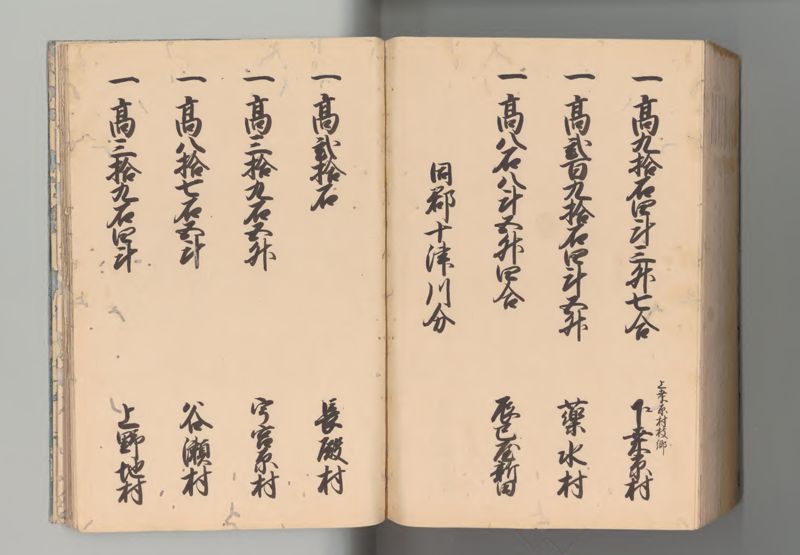 一 高九拾石四斗三升七合
上葉原村枝郷
下葉原村
一 高弐百九拾石四斗五升
薬水村
一 高八石八斗五升四合
辰巳屋新田
同郡十津川分
一 高弐拾石
長殿村
一 高三拾九石五升
宇宮原村
一 高八拾七石五斗
谷瀬村
一 高三拾九石四斗
上野地村